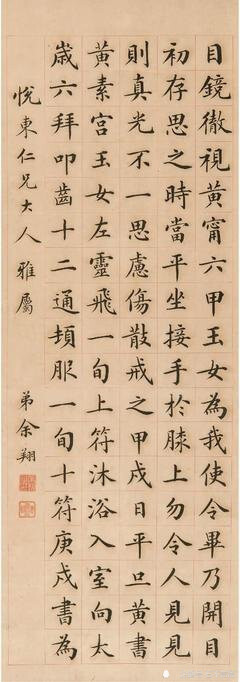 目鏡徹視黃甯六甲玉女為我使令畢乃開目
初存思之時當平坐接手於膝上勿令人見見
則真光不一思慮傷散戒之甲戌日平旦黃書
黃素宮玉女左靈飛一旬上符沐浴入室向太
歲六拜叩齒十二通頓服一旬十符庚戌書為
悅東仁兄大人雅屬
弟余翔